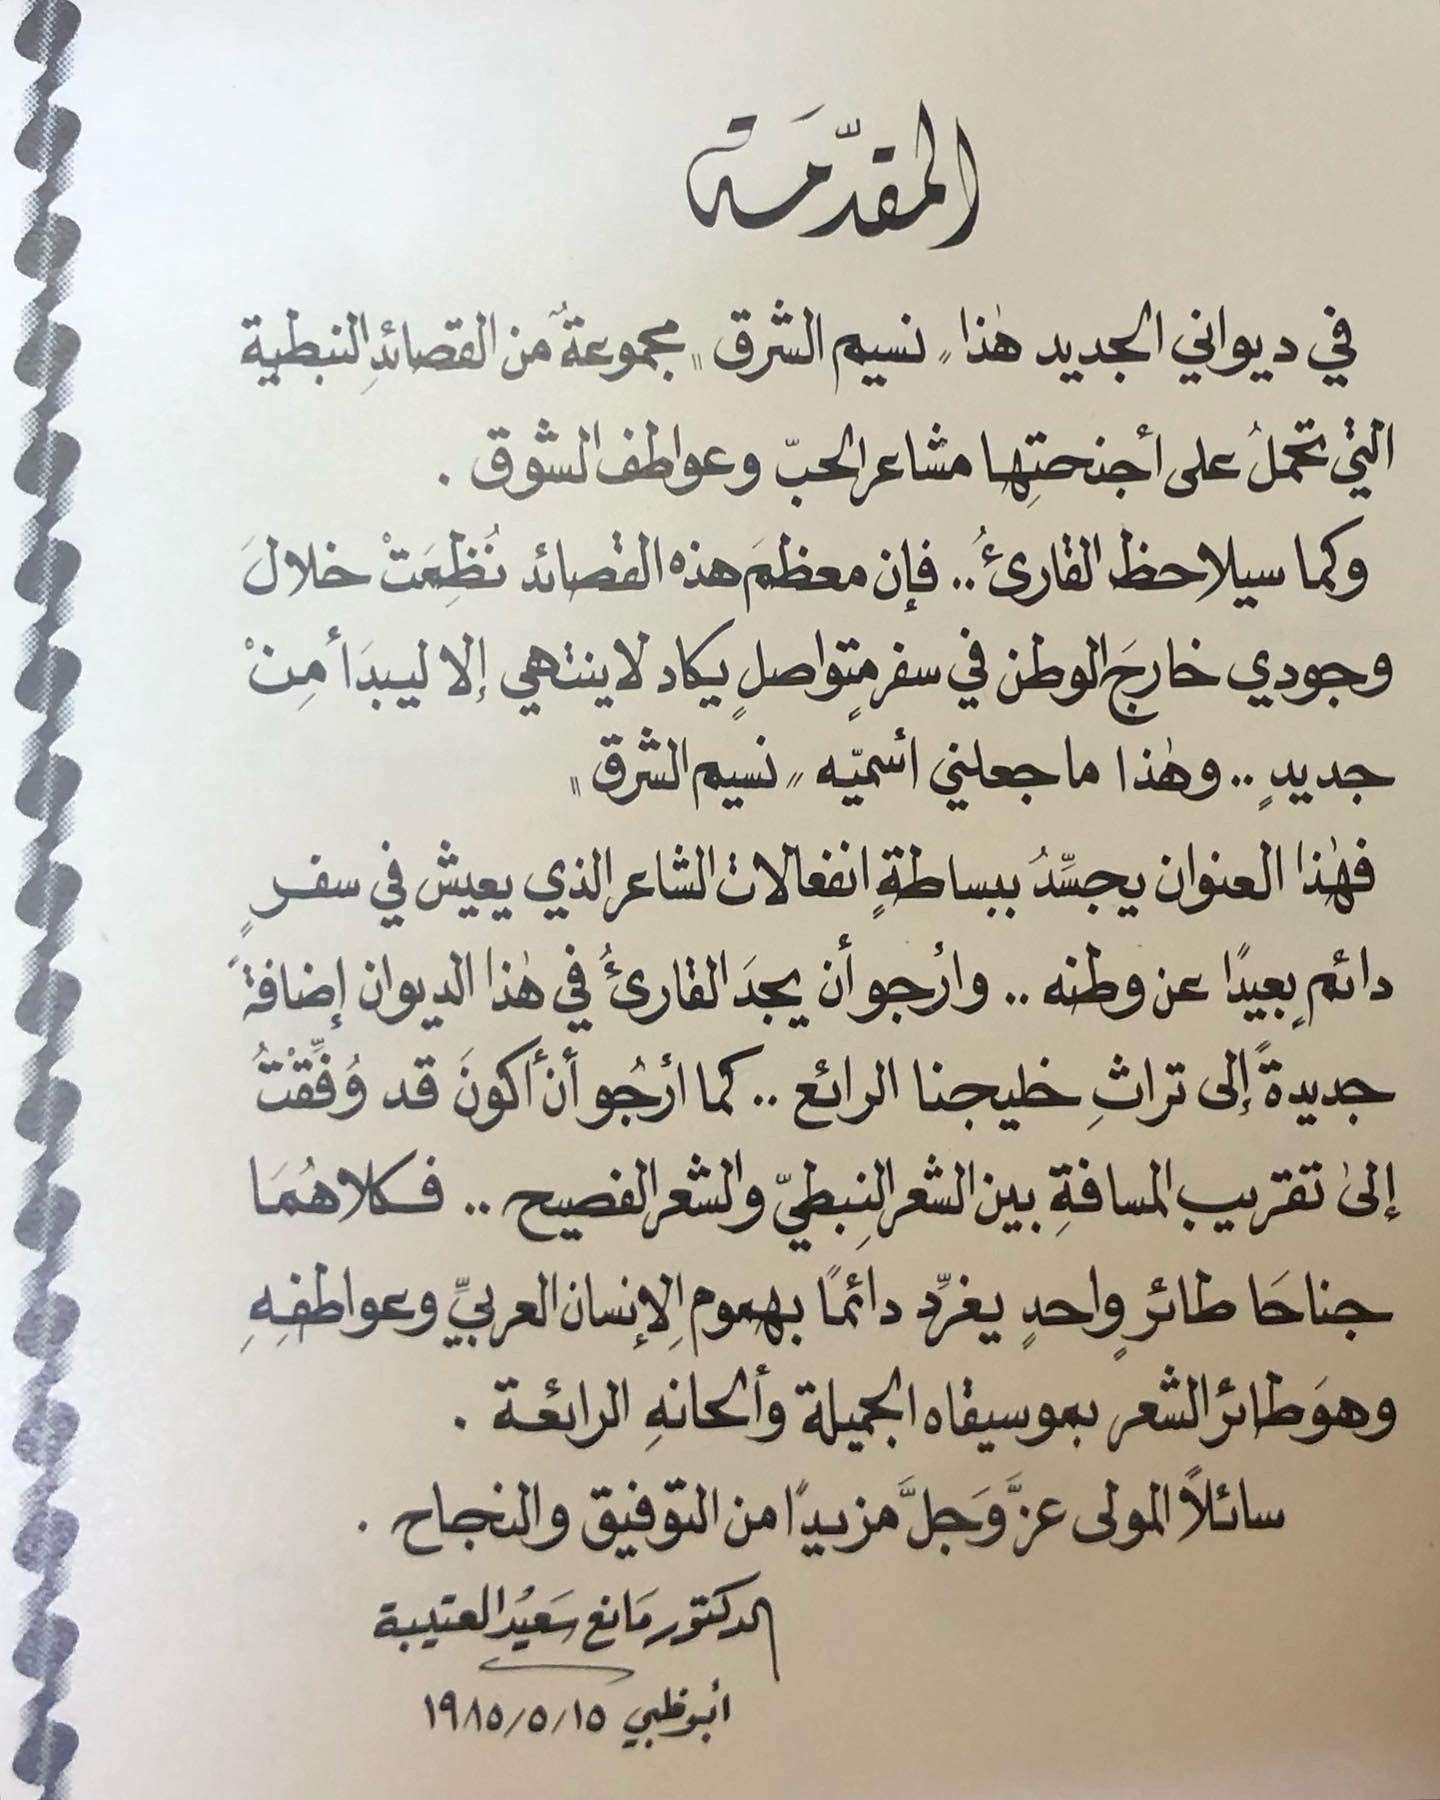 المقدّمَة
في ديواني الجديد هٰذا " نسيم الشرق " مجموعةٌ من القصائدِ النبطية
التي تحملُ على أجنحتِها مشاعر الحبّ وعواطف الشوق .
وكما سيلاحظ القارئُ .. فإن معظمَ هذه القصائد نُظِمَتْ خلالَ
وجودي خارجَ الوطن في سفرٍ متواصلٍ يكاد لا ينتهي إلا ليبدَأ مِنْ
جديدٍ .. وهٰذا ما جعلني أسمّيه " نسيم الشرق "
فهٰذا العنوان يجسِّدُ ببساطةٍ انفعالات الشاعر الذي يعيش في سفرٍ
دائمٍ بعيدًا عن وطنه .. وأرجو أن يجدَ القارئُ في هٰذا الديوان إضافةً
جديدةً إلى تراثِ خليجنا الرائع .. كما أرجُو أن أكونَ قد وُفِّقْتُ
إلىٰ تقريب المسافةِ بين الشعر النِبطيّ والشعر الفصيح .. فكلاهُمَا
جناحَا طائرٍ واحدٍ يغرِّد دائمًا بهمومِ الإنسان العربيِّ وعواطفِهِ
وهوَ طائر الشعر بموسيقاه الجميلة وألحانهِ الرائعة .
سائلاً المولى عزَّ وَجلَّ مزيدًا من التوفيق والنجاح .
الدكتور مَانع سَعيْد العتيبة
أبوظبي ١٩٨٥/٥/١٥